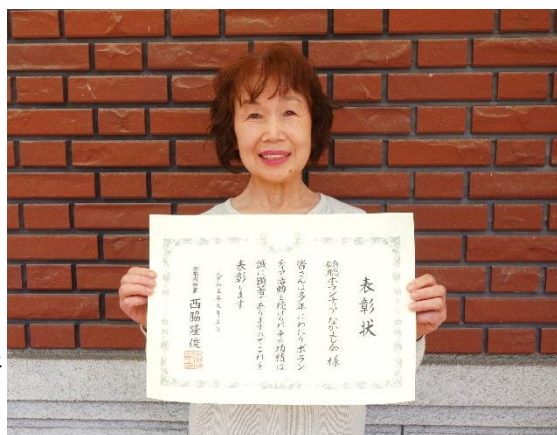 表彰状
ボランティアなかよし会 様
皆さんは多年にわたりボラン
ティア活動を続けられその功績は
誠に顕著でありますのでこれを
表彰します
令和五年九月
京都府知事 西脇隆俊